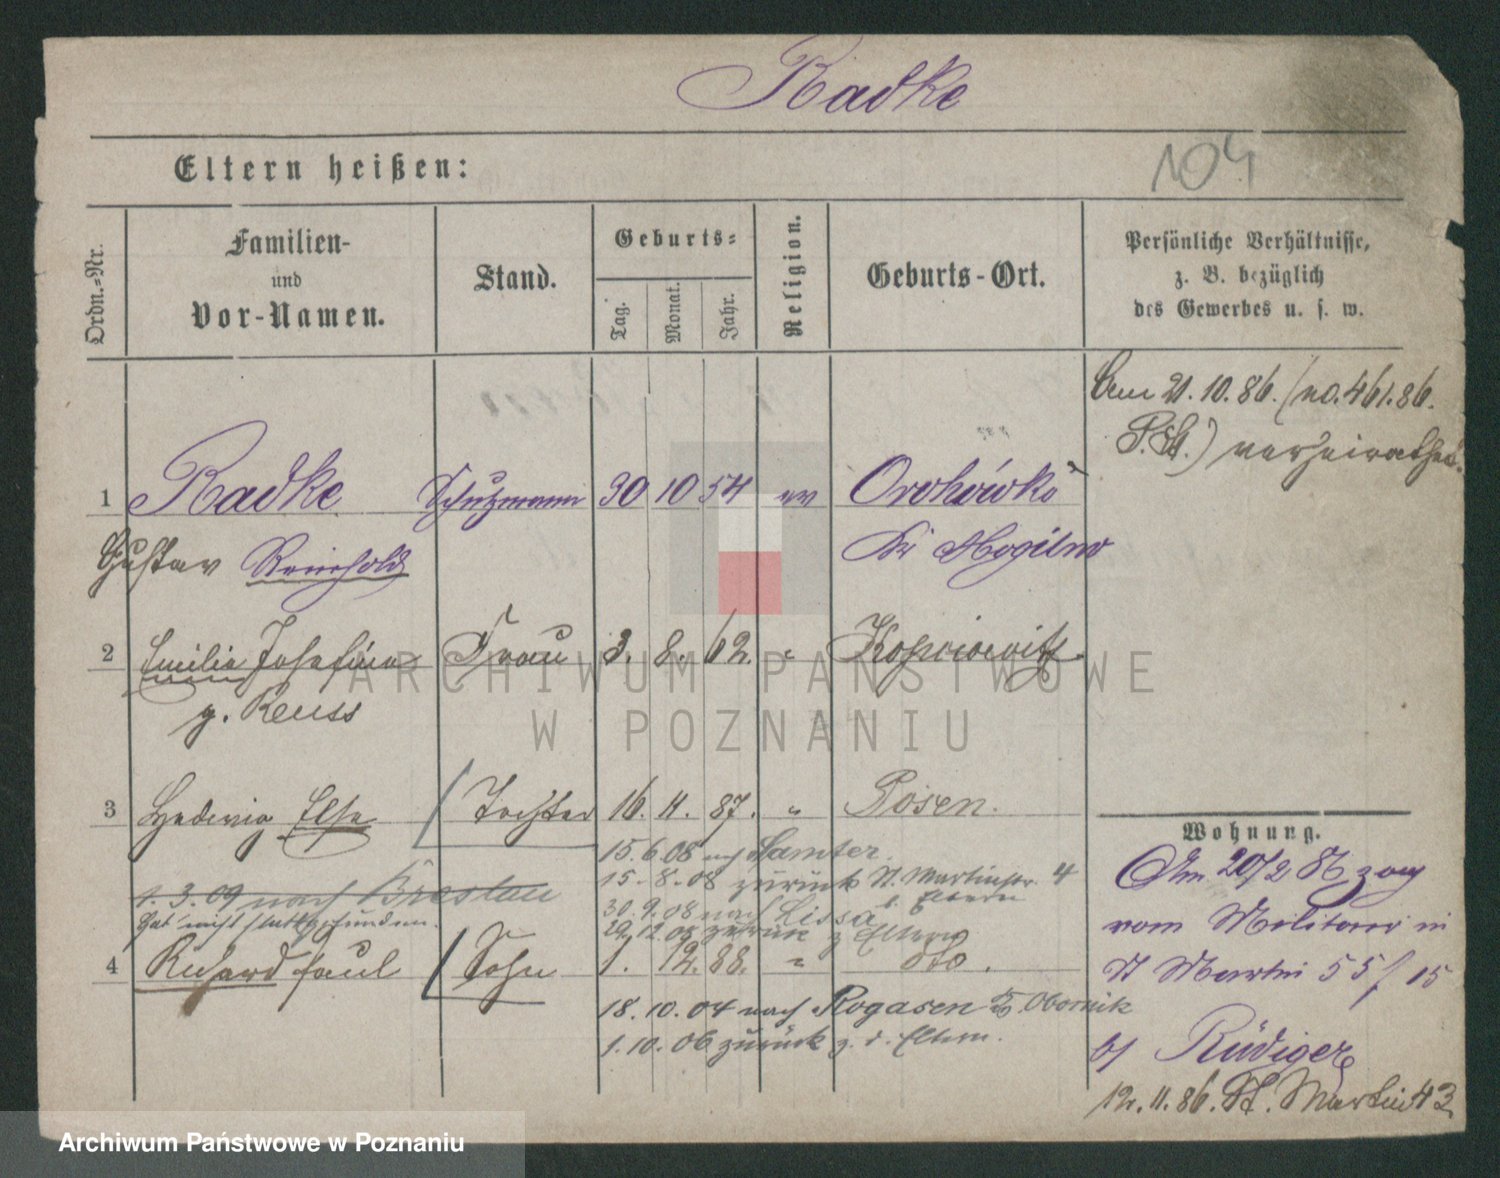 Radke
Eltern heißen:
104
Ordn.-Nr.
Familien-
und
Vor-Namen.
Stand.
Geburts-
Tag.
Monat.
Jahr.
Religion.
Geburts-Ort.
Persönliche Verhältnisse,
z. B. bezüglich
des Gewerbes u. s. w.
Am 21.10.86. (no. 461.86.
P.St.) verheirathet.
1 Radke Schutzmann 30 10 54 ev
Gustav Reinhold Kr Mogilno
2 Emilie Josefine Frau 3. 8. 62. "
g. Reuss
3 Hedwig Else Tochter 16. 11. 87. " Posen.
15.6.08 nch Samter.
15.8.08 zurück St. Martinstr. 4
b. Eltern
30.9.08 nach Lissa
29.12.08 zurück z Eltern
1.3.09 nach Breslau
hat nicht stattgefunden.
4 Richard Paul Sohn 1. 12. 88. " dto.
18.10.04 nach Rogasen Obornik
1.10.06 zurück z. d. Eltern.
Wohnung.
Am 20/2 86 zog
vom Militair in
St Martin 55 / 15
b/ Rüdiger
12.11.86. St. Martin 43
ARCHIWUM PAŃSTWOWE
W POZNANIU
Archiwum Państwowe w Poznaniu